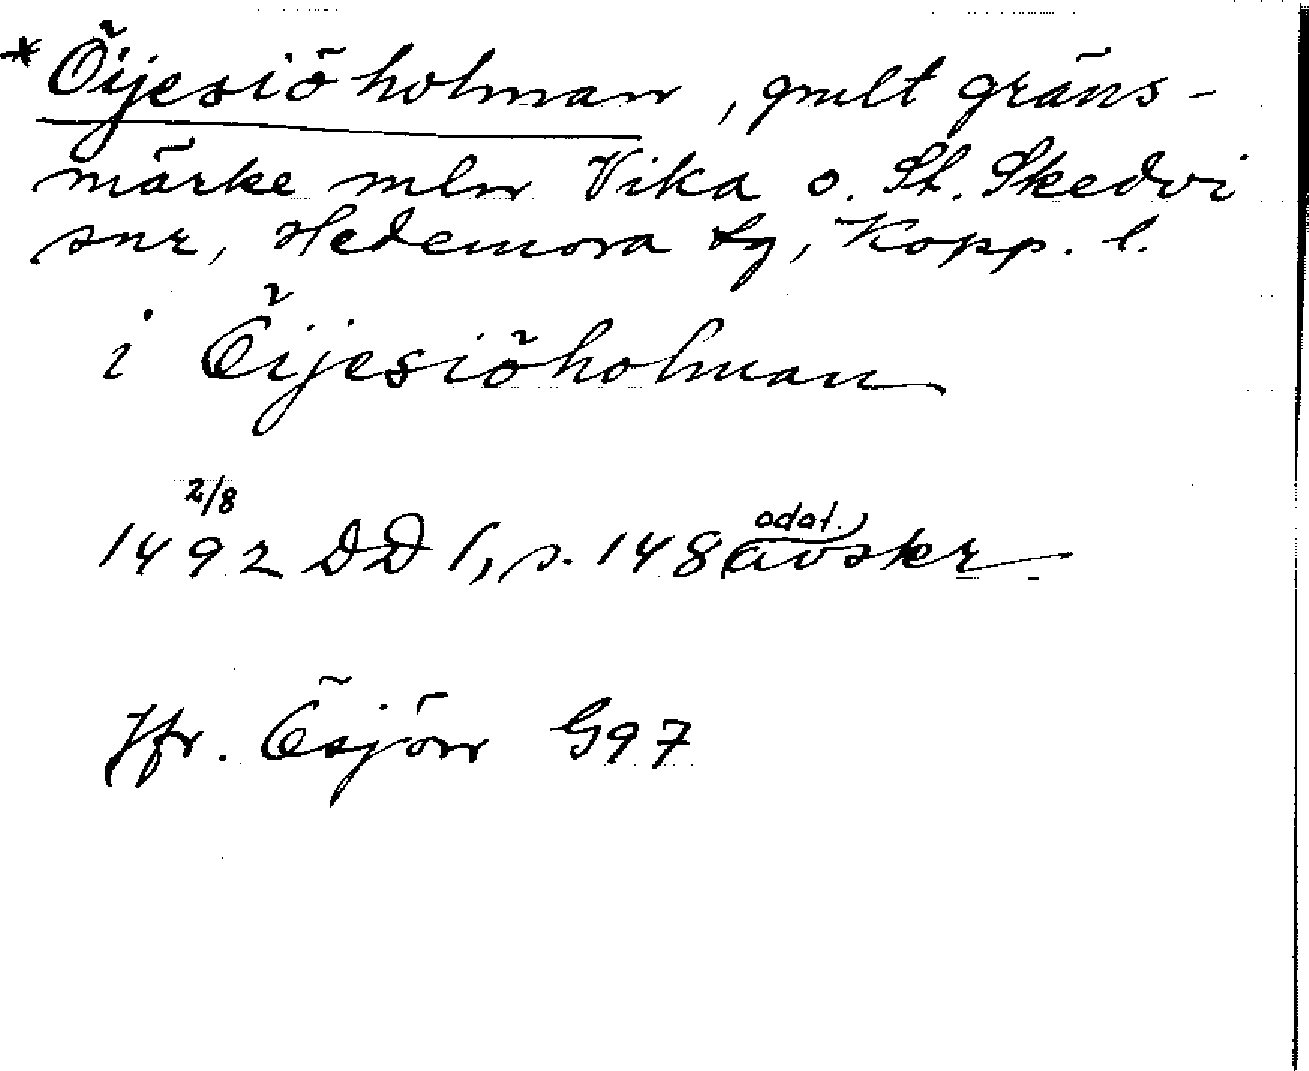 *Öijesiöholman, gmlt gräns-
märke mln Vika o. St. Skedvi
snr, Hedemora tg, Kopp. l.
i Öijesiöholman
2/8
1492 DD 1, s. 148 avskr
odat.
Jfr. Ösjön G97